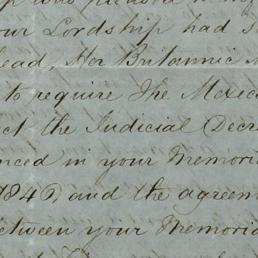 was pleased
our Lordship had
lead, Her Britannic
to require The Mexic
ct the Judicial Decre
nced in your Memori
1846) and the agreem
etween your Memoria